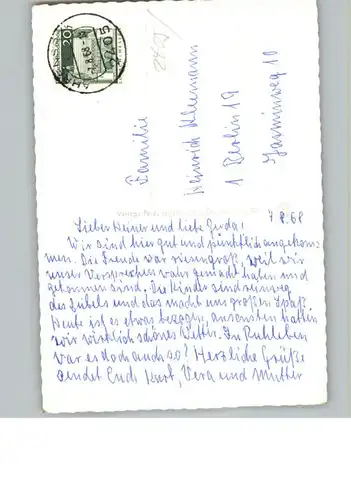 20
Familie
Heinrich Kleemann
1 Berlin 19
Jasminweg 10
7.8.68
Lieber Heiner und liebe Gerda!
Wir sind hier gut und pünktlich angekom-
men. Die Freude war riesengroß, weil wir
unser Versprechen wahr gemacht haben und
gekommen sind. Die Kinder sind
des Jubels und das macht uns großen Spaß.
Heute ist es etwas bezogen, ansonsten hatten
wir wirklich schönes Wetter. In Ruhleben
war es doch auch so? Herzliche Grüße
sendet Euch Kurt, Vera und Mutter